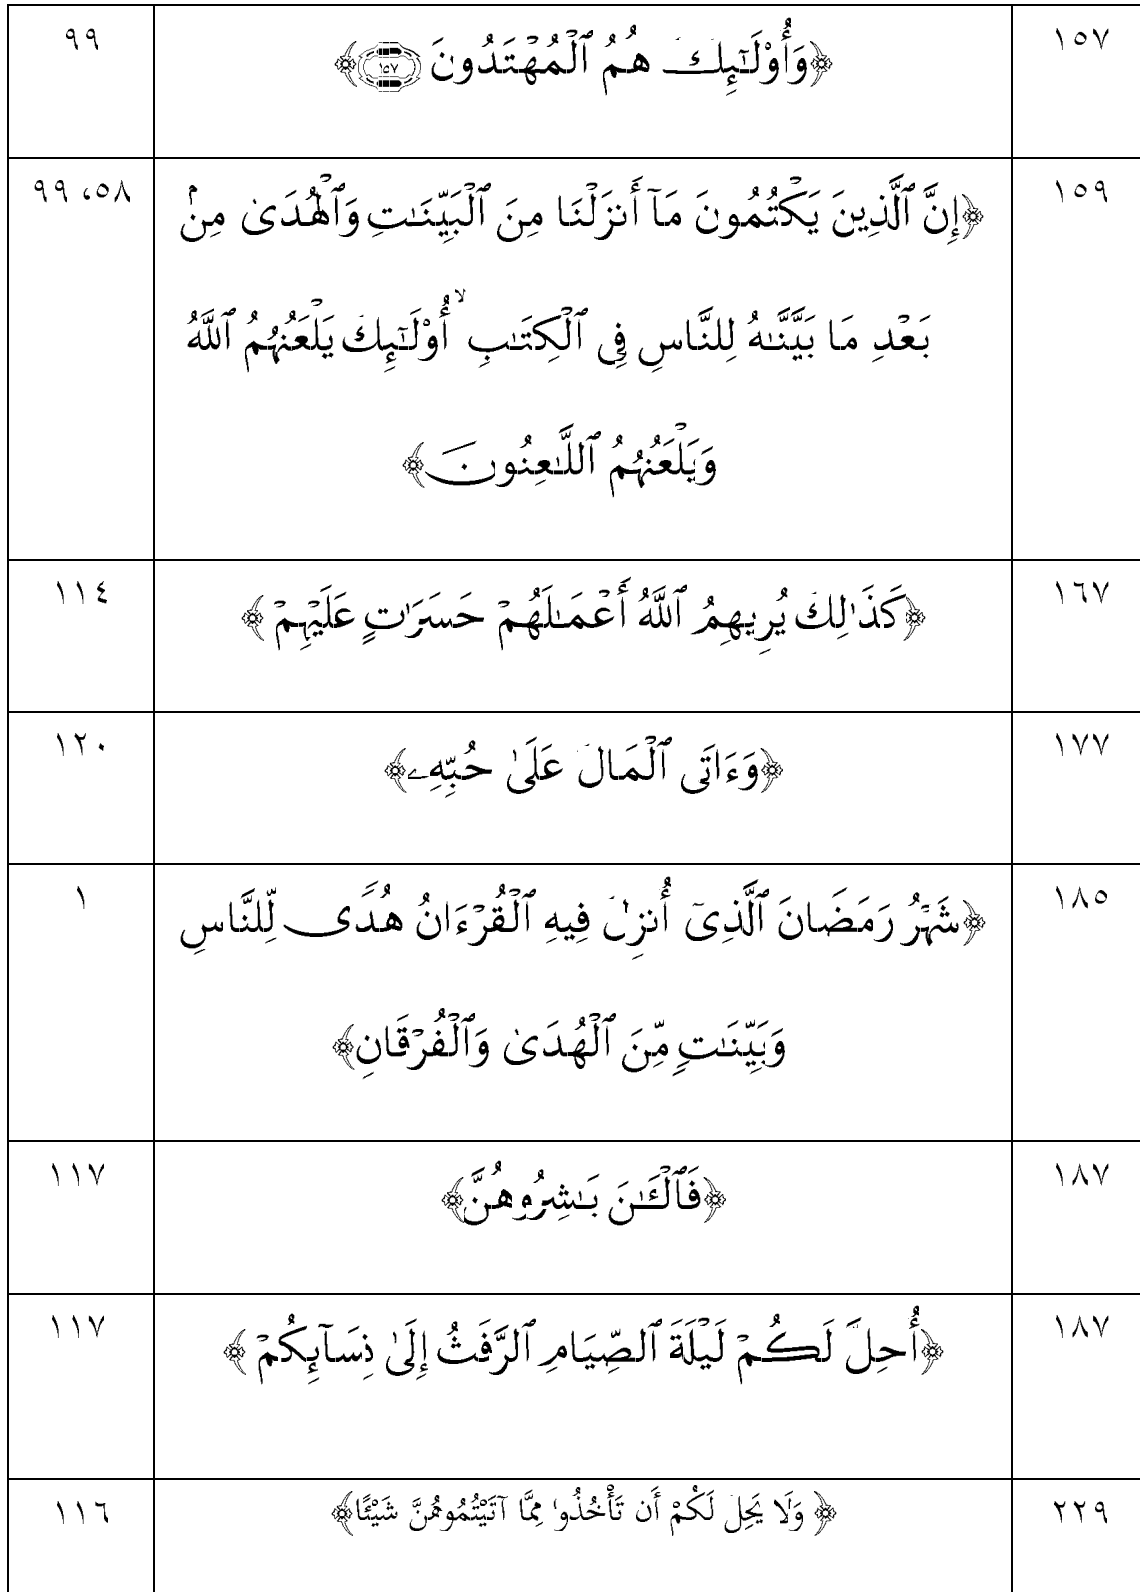 ١٥٧ ﴿وَأُوْلَٰٓئِكَ هُمُ ٱلۡمُهۡتَدُونَ ١٥٧﴾ ٩٩
١٥٩ ﴿إِنَّ ٱلَّذِينَ يَكۡتُمُونَ مَآ أَنزَلۡنَا مِنَ ٱلۡبَيِّنَٰتِ وَٱلۡهُدَىٰ مِنۢ ٥٨، ٩٩
بَعۡدِ مَا بَيَّنَّٰهُ لِلنَّاسِ فِي ٱلۡكِتَٰبِ ۙ أُوْلَٰٓئِكَ يَلۡعَنُهُمُ ٱللَّهُ
وَيَلۡعَنُهُمُ ٱللَّٰعِنُونَ﴾
١٦٧ ﴿كَذَٰلِكَ يُرِيهِمُ ٱللَّهُ أَعۡمَٰلَهُمۡ حَسَرَٰتٍ عَلَيۡهِمۡ ﴾ ١١٤
١٧٧ ﴿وَءَاتَى ٱلۡمَالَ عَلَىٰ حُبِّهِۦ﴾ ١٢٠
١٨٥ ﴿شَهۡرُ رَمَضَانَ ٱلَّذِيٓ أُنزِلَ فِيهِ ٱلۡقُرۡءَانُ هُدًى لِّلنَّاسِ ١
وَبَيِّنَٰتٍ مِّنَ ٱلۡهُدَىٰ وَٱلۡفُرۡقَانِ﴾
١٨٧ ﴿فَٱلۡـَٰٔنَ بَٰشِرُوهُنَّ﴾ ١١٧
١٨٧ ﴿أُحِلَّ لَكُمۡ لَيۡلَةَ ٱلصِّيَامِ ٱلرَّفَثُ إِلَىٰ نِسَآئِكُمۡ ﴾ ١١٧
٢٢٩ ﴿ وَلَا يَحِلُّ لَكُمْ أَن تَأْخُذُوا۟ مِمَّا آتَيْتُمُوهُنَّ شَيْئًا﴾ ١١٦